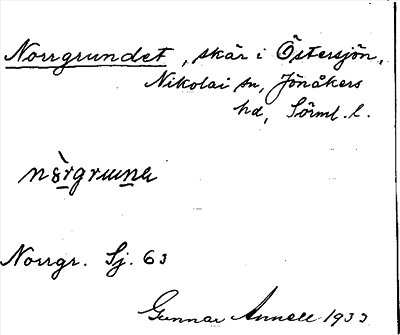 Norrgrundet, skär i Östersjön,
Nikolai sn, Jönåkers
hd, Sörml. l.
Norrgr. Sj. 63
Gunnar Annell 1933